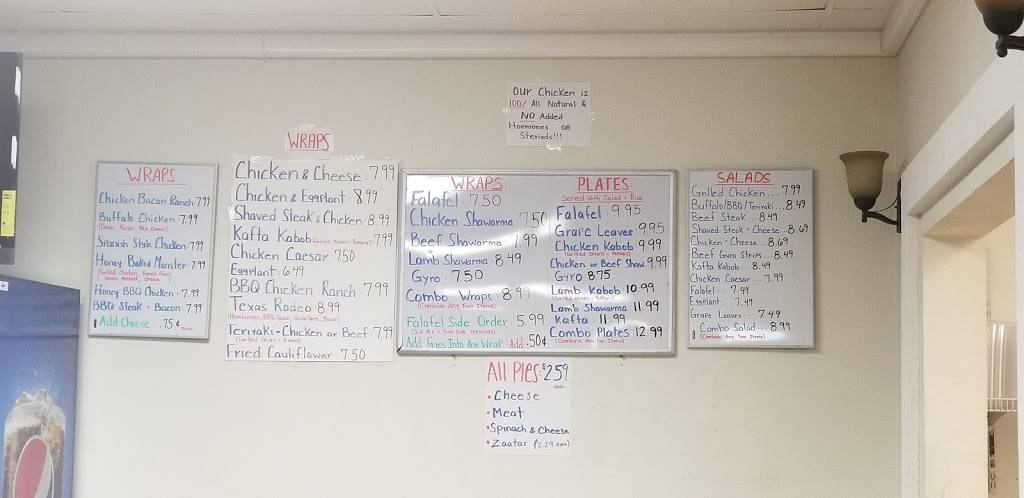 Our Chicken is
100% All Natural &
NO Added
Hormones OR
Steriods!!!
WRAPS
Chicken Bacon Ranch 7.99
Buffalo Chicken 7.99
Spanish Style Chicken 7.99
Honey Baked Monster 7.99
Honey BBQ Chicken 7.99
BBQ Steak & Bacon 7.99
Add Cheese .75¢
WRAPS
Chicken & Cheese 7.99
Chicken & Eggplant 8.99
Shaved Steak & Chicken 8.99
Kafta Kabob (Grilled Onions & Peppers) 7.99
Chicken Caesar 7.50
Eggplant 6.49
BBQ Chicken Ranch 7.99
Texas Rodeo 8.99
(Hamburger, BBQ Sauce, Onion Rings, Bacon)
Teriyaki-Chicken or Beef 7.99
(Grilled Onions & Peppers)
Fried Cauliflower 7.50
WRAPS
Falafel 7.50
Chicken Shawarma 7.50
Beef Shawarma 7.99
Lamb Shawarma 8.49
Gyro 7.50
Combo Wraps 8.99
(Combine Any Two Items)
Falafel Side Order 5.99
Add Fries Into Any Wrap Add .50¢
PLATES
Served With Salad & Rice
Falafel 9.95
Grape Leaves 9.95
Chicken Kabob 9.99
(Grilled Onions & Peppers)
Chicken or Beef Shaw. 9.99
Gyro 8.75
Lamb Kabob 10.99
(Grilled Onions & Peppers)
Lamb Shawarma 11.99
Kafta 11.99
Combo Plates 12.99
(Combine Any Two Items)
SALADS
Grilled Chicken... 7.99
Buffalo/BBQ/Teriyaki...8.49
Beef Steak.. 8.49
Shaved Steak & Cheese.. 8.69
Chicken & Cheese.. 8.69
Beef Gyro Strips.. 8.49
Kafta Kabob.. 8.49
Chicken Caesar.. 7.99
Falafel.. 7.49
Eggplant... 7.49
Grape Leaves... 7.49
Combo Salad... 8.99
(Combine Any Two Items)
All Pies: $2.59
each
• Cheese
• Meat
• Spinach & Cheese
• Zaatar (2.29 each)